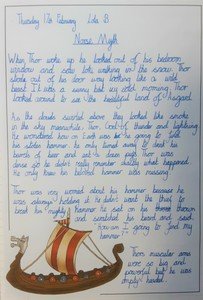 Thursday 17th February Lola B
Norse Myth
When Thor woke up he looked out of his bedroom
window and saw Loki walking in the snow. Thor
strode out of his door way looking like a wild
beast. It was a sunny but icy cold morning. Thor
looked around to see the beautiful land of Asgard.
As the clouds swirled above they looked like smoke
in the sky meanwhile Thor, God of thunder and lightning
He wondered how
his stolen hammer. he only turned away to
beards of beer and sat down
dense so he didn't really remember exactly what happened
He only knew his beloved hammer was missing.
Thor was very worried about his hammer because he
was always holding it he didn't want the thief to
break his mighty hammer. he sat on his throne thrown
and scratched his beard and said,
how am I going to find my
hammer"
Thors muscular arms
were so big and
powerful but he was
empty handed.